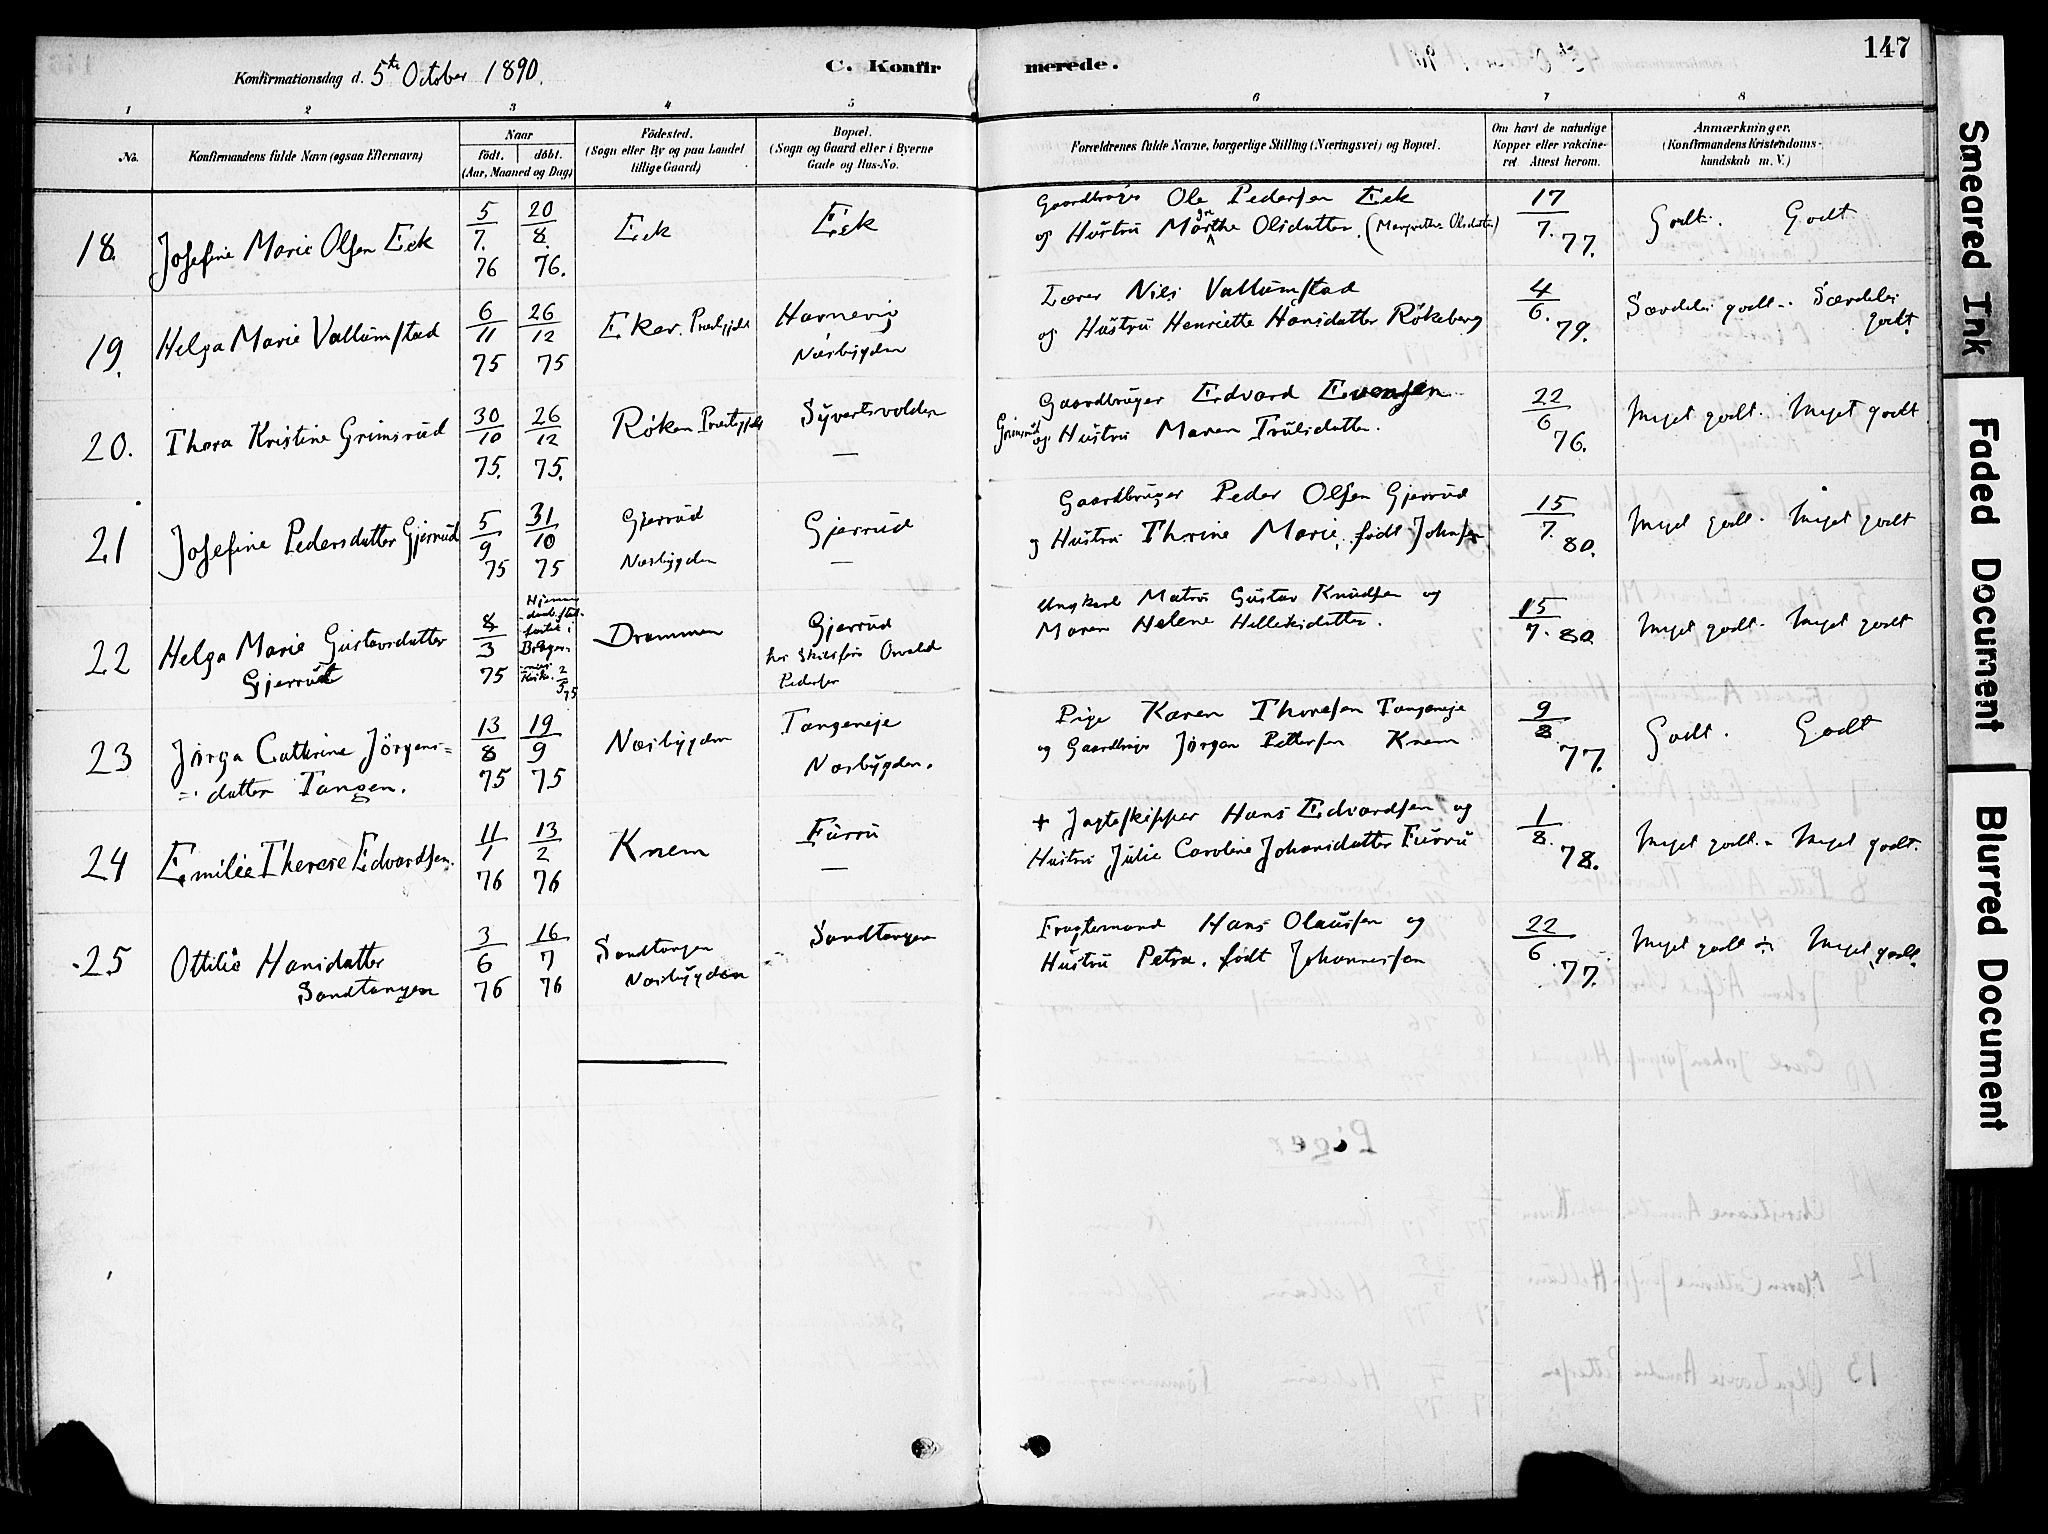 147
Konfirmationsdag d. 5te October 1890.
C. Konfirmerede.
1 2 3 4 5 6 7 8
No.
Konfirmandens fulde Navn (ogsaa Efternavn)
Naar
födt. döbt.
(Aar, Maaned og Dag)
Födested.
(Sogn eller By og paa Landet
tillige Gaard)
Bopæl.
(Sogn og Gaard eller i Byerne
Gade og Hus-No.
Forældrenes fulde Navne, borgerlige Stilling (Næringsvei) og Bopæl.
Om havt de naturlige
Kopper eller vakcine-
ret Attest herom.
Anmærkninger.
(Konfirmandens Kristendoms-
kundskab m. V.)
18. Josefine Marie Olsen Eek 5/7. 76 20/8. 76. Eek Eek
Gaardbruger Ole Pedersen Eek
og Hustru Marthe Olsdatter. (Margrethe Olsdatter)
17/7. 77. Godt. Godt
19. Helga Marie Vallumstad 6/11 75 26/12 75 Eker. Præstgjeld
Nærbygden
Lærer Nils Vallumstad
og Hustru Henriette Hansdatter Rökeberg
4/6. 79. Særdeles godt.. Særdeles
godt.
20. Thora Kristine Grimsrud 30/10 75. 26/12 75. Röken Præstgjeld Syvertsvolden
Gaardbruger Edvard Evensen
Grimsrud og Hustru Maren Trulsdatter.
22/6 76. Meget godt. Meget godt
21 Josefine Pedersdatter Gjerrud 5/9 75 31/10 75 Gjerrud
Næsbygden
Gjerrud
Gaardbruger Peder Olsen Gjerrud
og Hustru Thrine Marie, födt Johnsen
15/7. 80. Meget godt. Meget godt
22 Helga Marie Gustavsdatter
Gjerrud
8/3 75 Hjemme
i
Kirke. 2/5 75
Drammen
Gjerrud
hos Skibsförer Osvald
Pedersen
Ungkarl Matros Gustav Knudsen og
Maren Helene Helleksdatter.
15/7. 80. Meget godt. Meget godt
23 Jörga Cathrine Jörgens=
=datter Tangen.
13/8 75 19/9 75 Næsbygden
Tangeneje
Næsbygden.
Pige Karen Thoresen Tangeneje
og Gaardbruger Jörgen Pettersen Knem
9/8 77. Godt. Godt
24 Emilie Therese Edvardsen. 11/1 76 13/2 76 Knem Furru
+ Jagteskipper Hans Edvardsen og
Hustru Julie Caroline Johansdatter Furru
1/8. 78. Meget godt. Meget godt.
25 Ottilie Hansdatter
Sandtangen
3/6 76 16/7 76 Sandtangen
Næsbygden
Sandtangen
Fragtemand Hans Olaussen og
Hustru Petra. födt Johannessen
22/6 77. Meget godt Meget godt.
Smeared Ink
Faded Document
Blurred Document